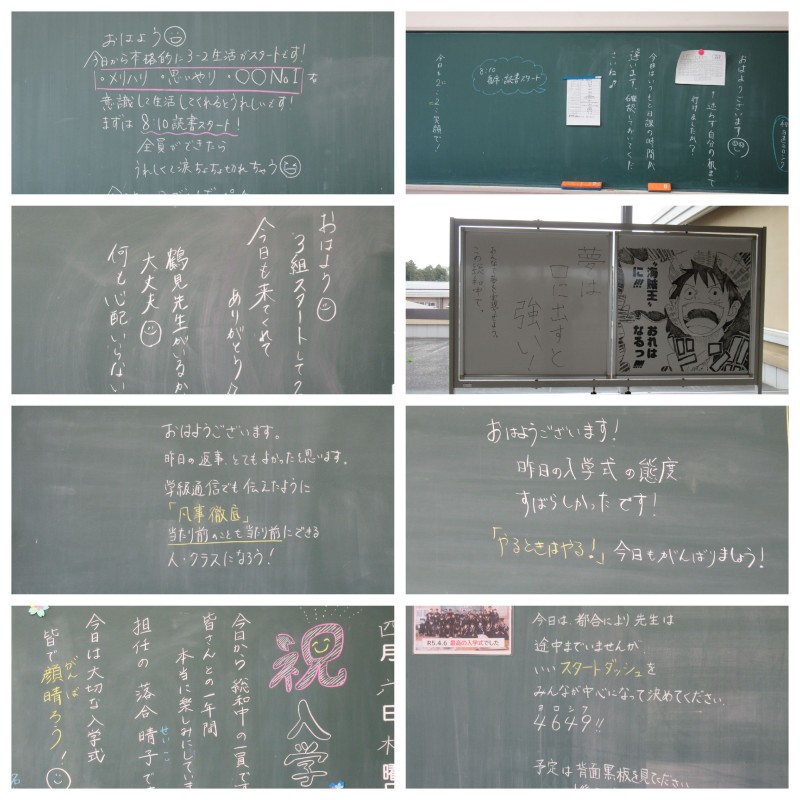 おはよう
今日から本格的に3-2生活がスタートです!
・メリハリ ・思いやり ・○○No.1を
意識して生活してくれるとうれしいです!
まずは 8:10読書スタート!
全員ができたら
うれしくて涙ちょちょ切れちゃう
おはようございます
迷わず自分の机まで
行けましたか?
今日はいつもと日課の時間が
違います。確認しておいてくだ
さいね♪
8:10
着席 読書スタート
今日も2-2 笑顔で!
おはよう
3組スタートして2
今日も来てくれて
ありがとう
鶴見先生がいるか
大丈夫
何も心配いらない
夢は
口に出すと
強い!
この瀬谷中で。
海賊王
に!!!
おれは
なるっ!!!
おはようございます。
昨日の返事、とてもよかったと思います。
学級通信でも伝えたように
「凡事徹底」
当たり前のことを当たり前にできる
人・クラスになろう!
おはようございます!
昨日の入学式の態度
すばらしかったです!
「やるときはやる!」今日もがんばりましょう!
四月六日木曜日
祝入学
今日から総和中の一員です
皆さんとの一年間
本当に楽しみにしていま
担任の落合晴子で
せいこ
今日は大切な入学式
皆で顔晴ろう!
がんば
R5.4.6 最高の入学式でした
今日は、都合により先生は
途中までいませんが
いいスタートダッシュを
みんなが中心になって決めてください
ヨロシク
4649!!
予定は背面黒板を見てください